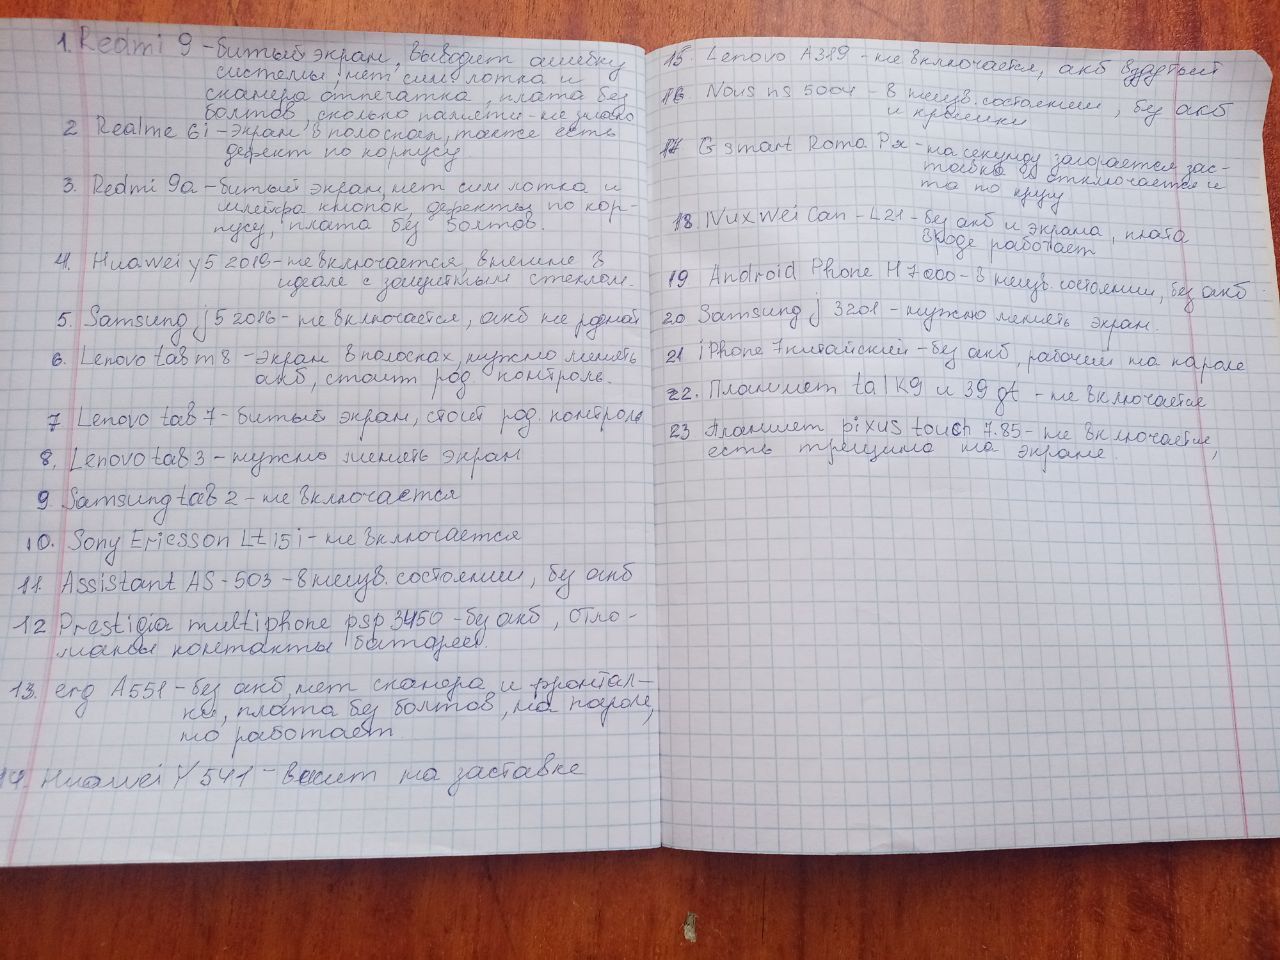 1. Redmi 9 - битый экран, выводит ошибку
системы, нет сим лотка и
сканера отпечатка, плата без
болтов, сколько памяти - не знаю
2 Realme 6i - экран в полосках, также есть
дефект по корпусу
3. Redmi 9a - битый экран, нет сим лотка и
шлейфа кнопок, дефекты по кор-
пусу, плата без болтов.
4. Huawei y5 2019 - не включается, внешне в
идеале с защитным стеклом.
5. Samsung j5 2016 - не включается, акб не родной
6. Lenovo tab m8 - экран в полосках, нужно менять
акб, стоит род контроль.
7 Lenovo tab 7 - битый экран, стоит род. контроль
8. Lenovo tab 3 - нужно менять экран
9 Samsung tab 2 - не включается
10. Sony Ericsson Lt15i - не включается
11. Assistant AS - 503 - в неизв. состоянии, без акб
12 Prestigio multiphone psp 3450 - без акб, отло-
маны контакты батареи.
13. erg A551 - без акб, нет сканера и фронтал-
ки, плата без болтов, на пароле,
но работает
14. Huawei Y541 - висит на заставке
15. Lenovo A319 - не включается, акб вздутый
16 Nous ns 5004 - в неизв. состоянии, без акб
и крышки
17 G smart Roma Rx - на секунду загорается зас-
тавка и отключается и
та по кругу
18. Wei Can - L21 - без акб и экрана, плата
вроде работает
19 Android Phone H7000 - в неизв. состоянии, без акб
20 Samsung j 3201 - нужно менять экран.
21 iPhone 7 китайский - без акб, рабочий на пароле
22. Планшет talk 9 и 39 gt - не включается
23 Планшет pixus touch 7.85 - не включается,
есть трещина на экране.